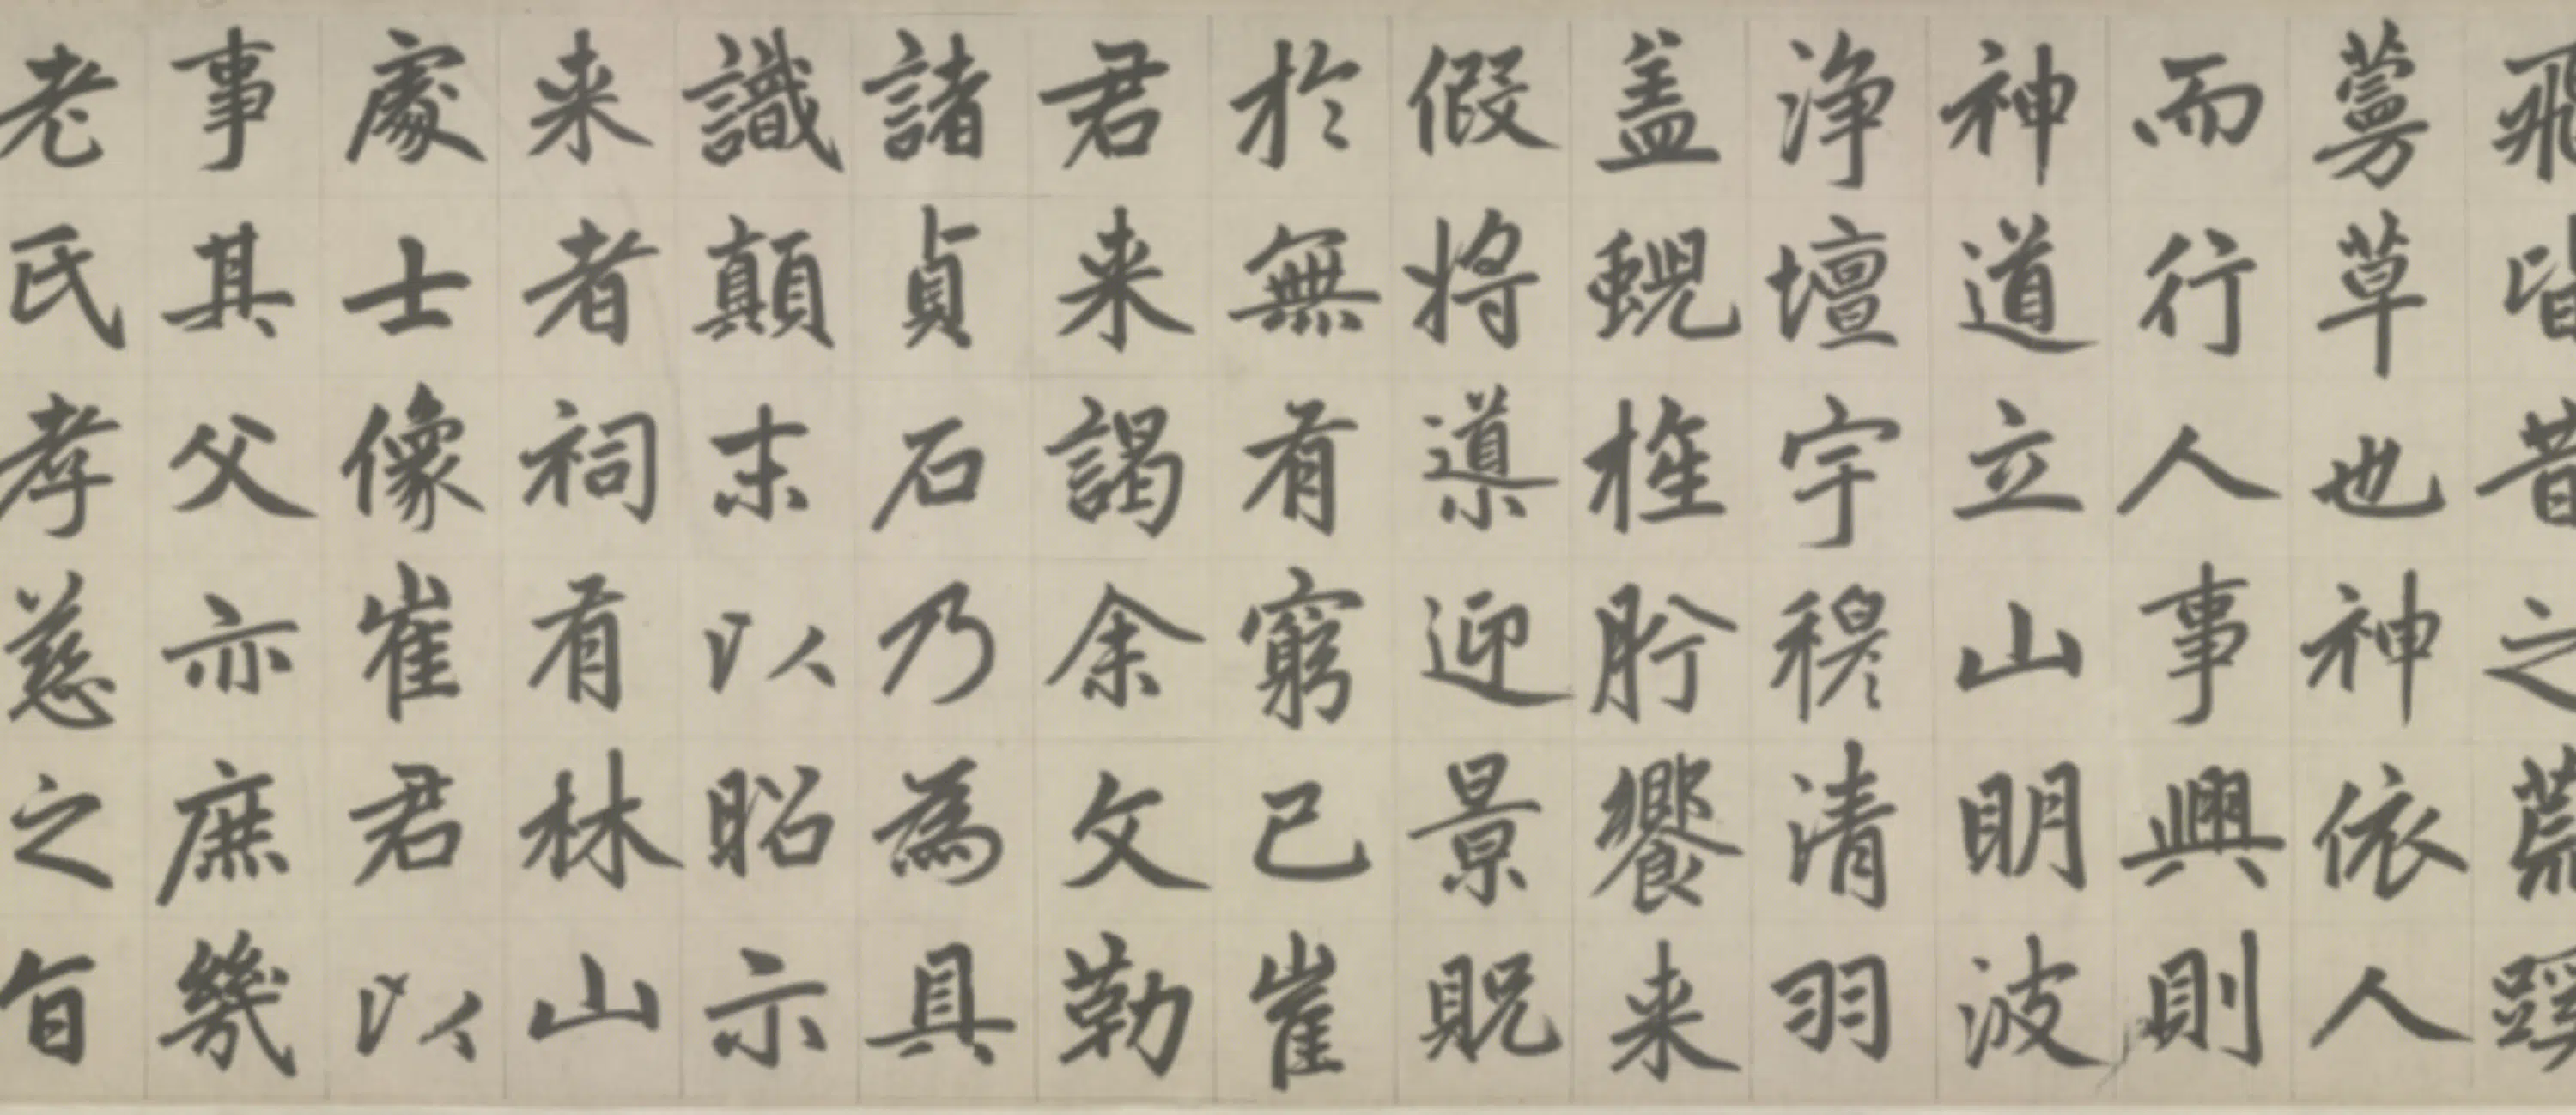 飛皆昔之荒蹊
蔓草也神依人
而行人事興則
神道立山明波
浄壇宇穆清羽
盖蜺旌肹饗来
假将導迎景貺
於無有窮已崔
君来謁余文勒
諸貞石乃為具
識顛末以昭示
来者祠有林山
處士像崔君以
事其父亦庶幾
老氏孝慈之旨